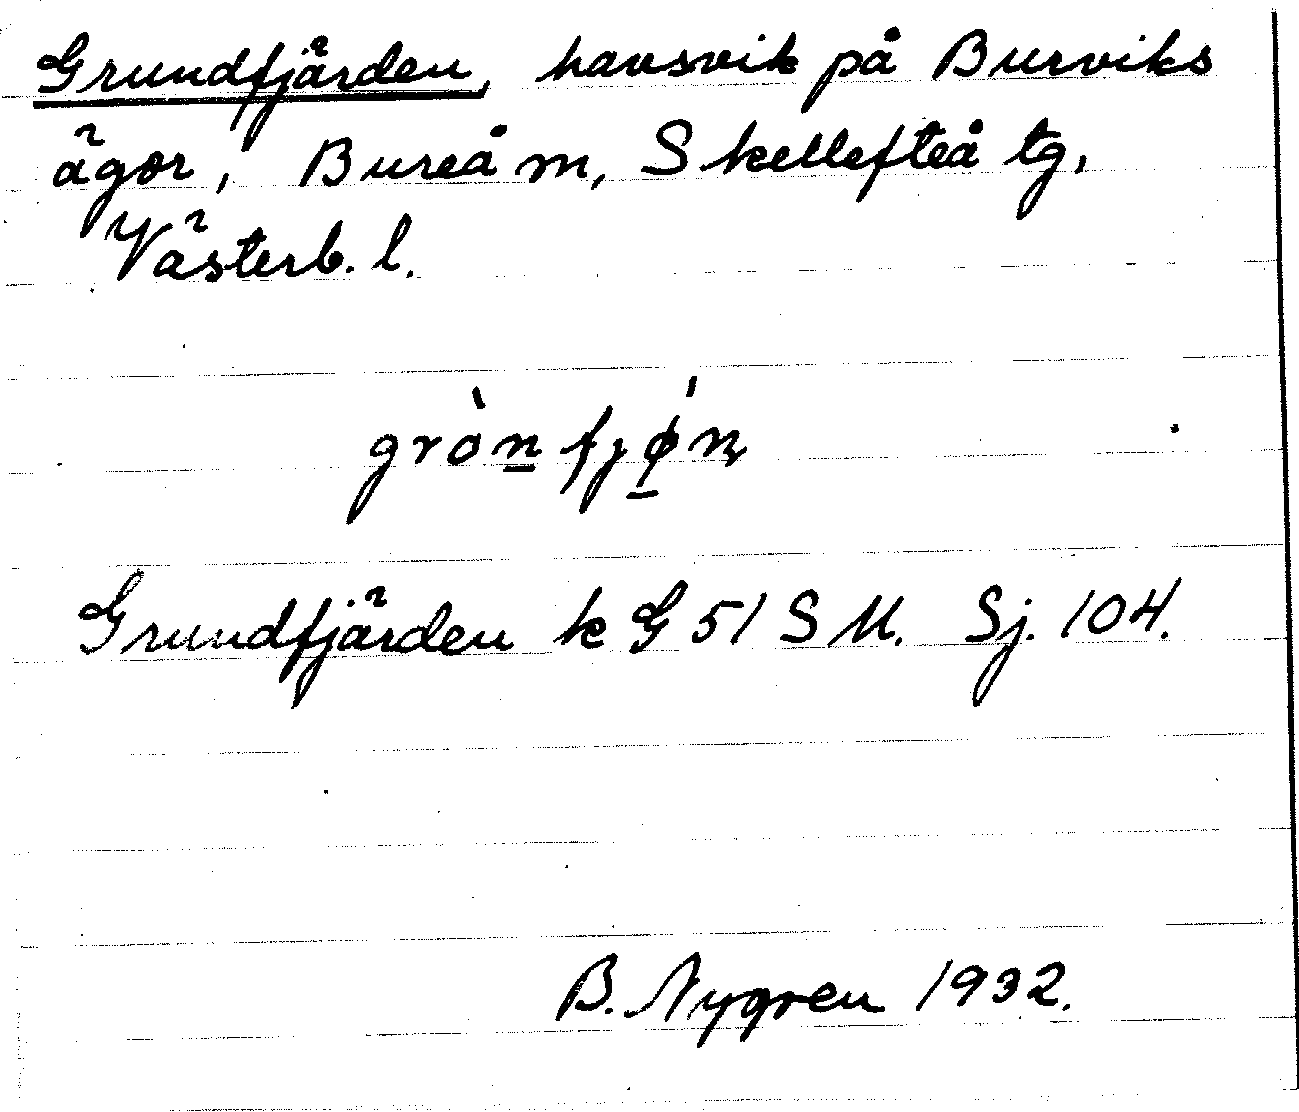 Grundfjärden, havsvik på Burviks
ägor, Bureå m, Skellefteå tg,
Västerb. l.
grò̱n fjǿ̱ṇ
Grundfjärden k G 51 S M. Sj. 104.
B. Nygren 1932.